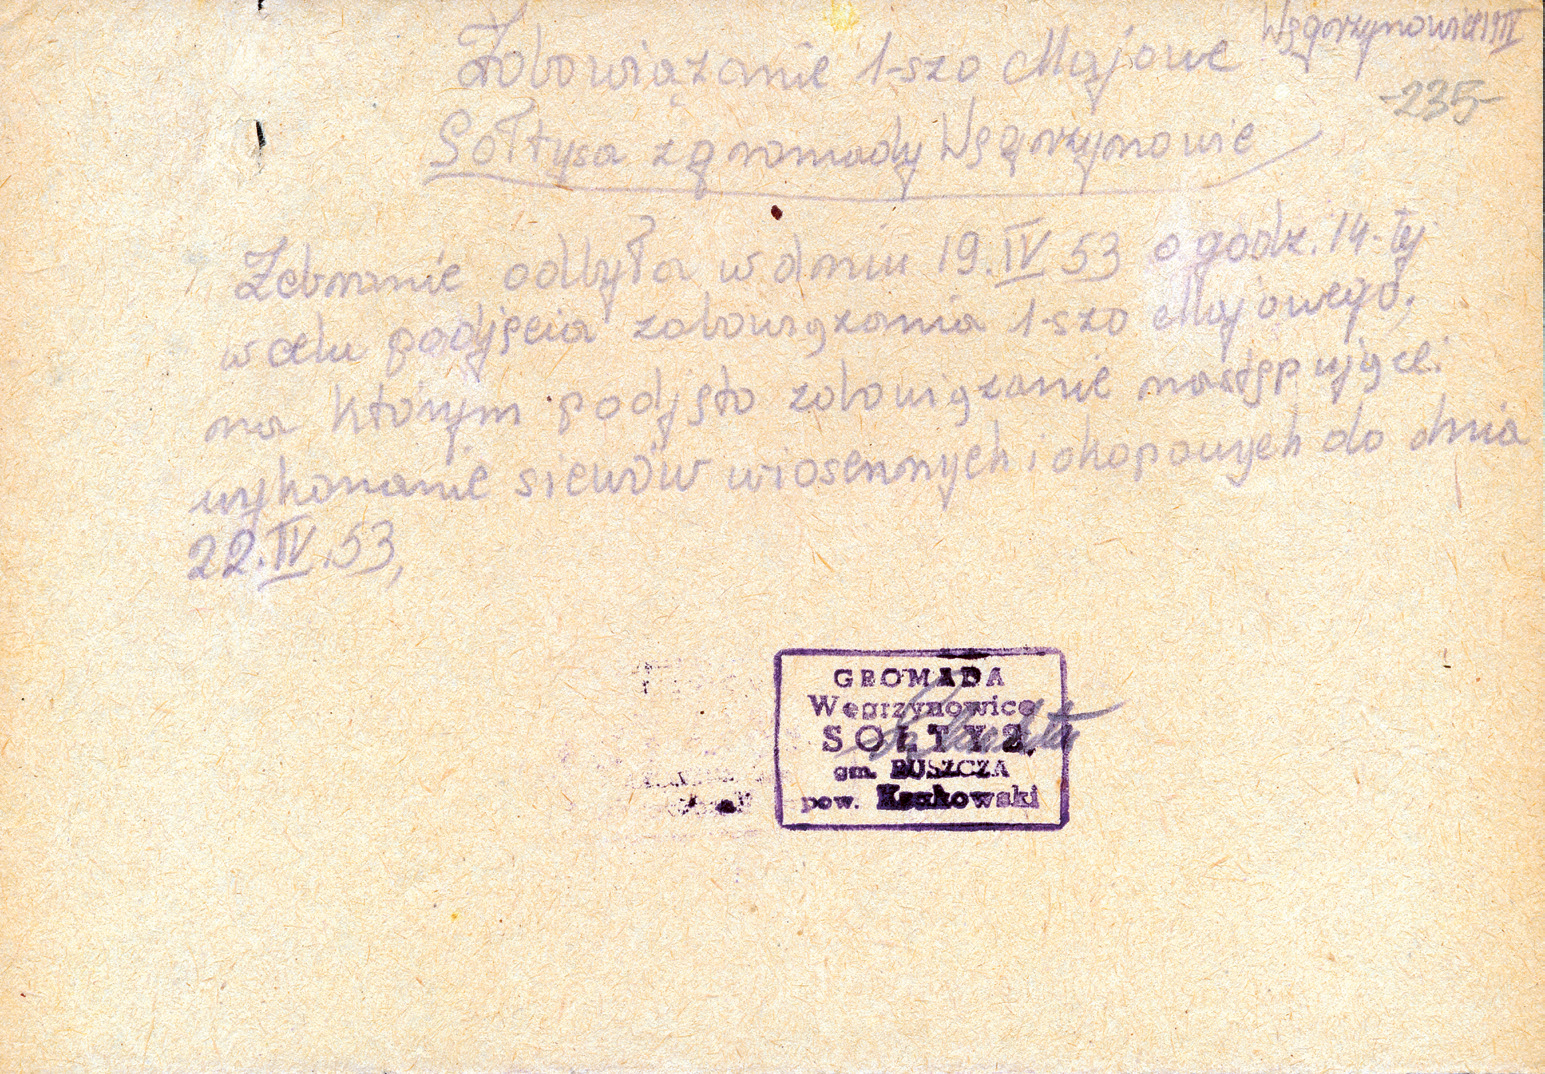 Węgrzynowice 19 IV
Zobowiązanie 1-szo Majowe
-235-
Sołtysa z gromady Węgrzynowic
Zebranie odbyła w dniu 19.IV 53 o godz. 14-tej
w celu podjęcia zobowiązania 1-szo Majowego,
na którym podjęto zobowiązanie następujące:
wykonanie siewów wiosennych i okopowych do dnia
22.IV.53,
GROMADA
Węgrzynowice
SOŁTYS
gm. RUSZCZA
pow. Krakowski